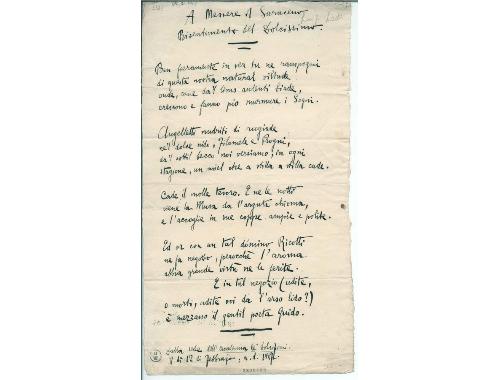 A Messere il Saraceno
Risentimento del Dolcissimo.
Ben fieramente in ver tu ne rampogni
di questa nostra natural virtude
onde, come da
crescono e fanno più mormure i Sogni.
Augelletti nutriti di rugiade
ne'l dolce nido, Filomele e Progni,
da'l becco noi versiamo, in ogni
stagione, un miel che a stilla a stilla cade.
Cade il molle tesoro. E ne la notte
viene la Musa da l'arguta chioma,
e l'accoglie in sue coppe ampie e polite.
Ed or con un tal domino Ricotti
ne fa negozio, perocché l'aroma
abbia grande virtù ne le ferite.
E in tal negozio (udite,
o morti, udite voi da l'arso lido?)
è mezzano il gentil poeta Guido.
Dalla sede dell'
di 12 di Febbraio, a. d.